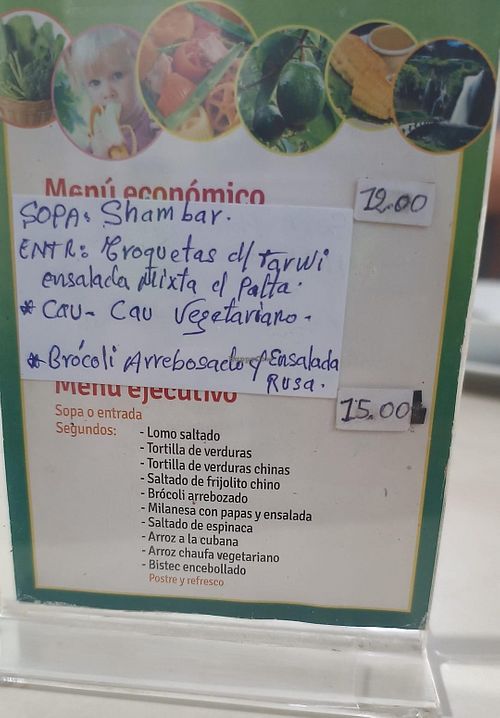 Menú económico
12.00
SOPA: Shambar.
ENTR: Croquetas d/ Tarwi
ensalada Mixta c/ Palta.
* Cau- Cau Vegetariano.
* Brócoli Arrebosado y Ensalada
Rusa.
Menú ejecutivo
15.00
Sopa o entrada
Segundos:
- Lomo saltado
- Tortilla de verduras
- Tortilla de verduras chinas
- Saltado de frijolito chino
- Brócoli arrebozado
- Milanesa con papas y ensalada
- Saltado de espinaca
- Arroz a la cubana
- Arroz chaufa vegetariano
- Bistec encebollado
Postre y refresco